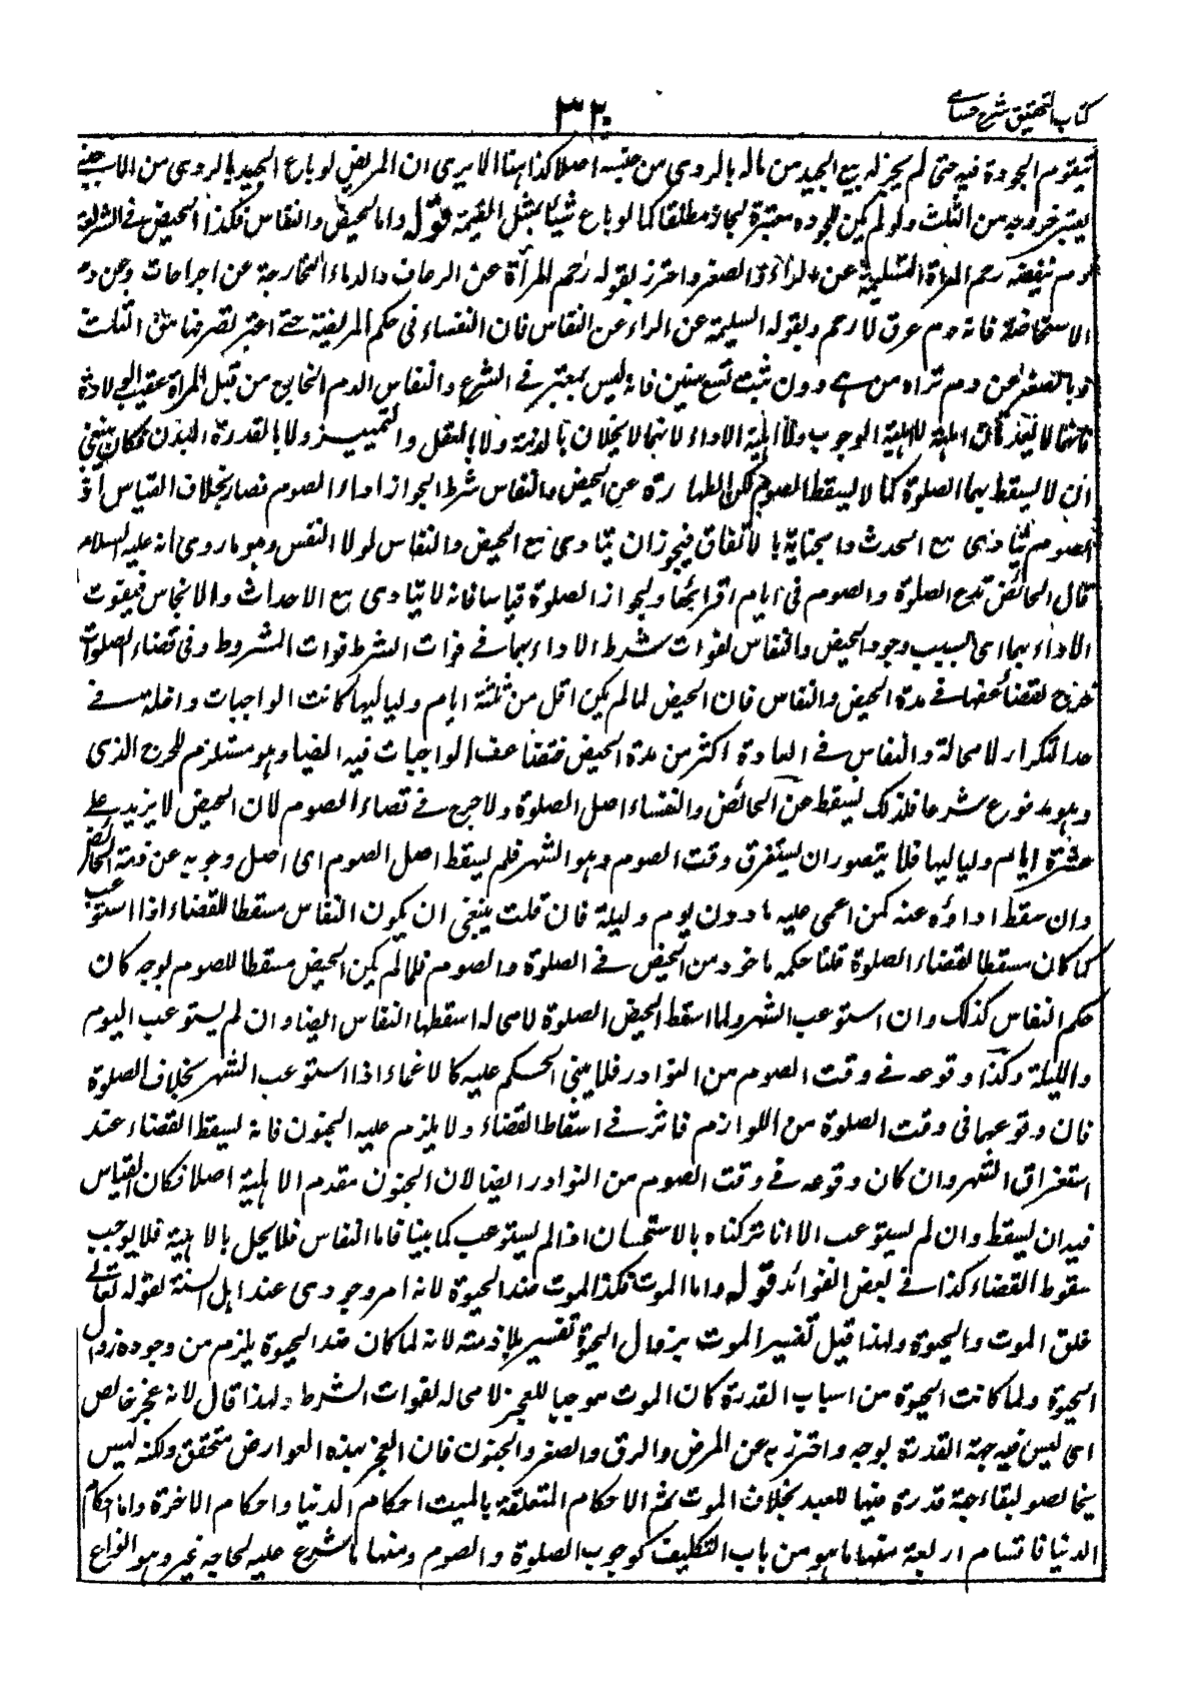 كتاب التحقيق شرح حسامي
٣٢٠
تتقوم الجودة فيه حتى لم يجز له بيع الجيد من ماله بالردى من جنسه اصلا كذا هنا الا يرى ان المريض لو باع الجيد بالردى من الاجنبى
يعتبر خروجه من الثلث ولو لم يكن الجودة معتبرة لجاز مطلقا كما لو باع شيئا بمثل القيمة قوله واما الحيض والنفاس فكذا الحيض فى الشريعة
دم ينفضه رحم المرأة السليمة عن الداء والصغر واحترز بقوله رحم المرأة عن الرعاف والدماء الخارجة عن الجراحات وعن دم
الاستحاضة فانه دم عرق لا رحم وبقوله السليمة عن الداء عن النفاس فان النفساء فى حكم المريضة حتى اعتبر تصرفها من الثلث
وبالصغر عن دم تراه من هى دون بنت تسع سنين فانه ليس بمعتبر فى الشرع والنفاس الدم الخارج من قبل المرأة عقيب الولادة
لاهلية الوجوب ولا اهلية الاداء لانهما لا يخلان بالذمة ولا بالعقل والتمييز ولا بالقدرة البدن فكان ينبغى
ان لا يسقط بهما الصلوة كما لا يسقط الصوم لكن الطهارة عن الحيض والنفاس شرط لجواز اداء الصوم نصا بخلاف القياس اذ
الصوم يتأدى مع الحدث والجنابة بالاتفاق فيجوز ان يتادى مع الحيض والنفاس لولا النص وهو ما روى انه عليه السلام
قال الحائض تدع الصلوة والصوم فى ايام اقرائها ولجواز الصلوة قياسا فانه لا يتادى مع الاحداث والانجاس فيفوت
الاداء بهما اى بسبب وجود الحيض والنفاس لفوات شرط الاداء بهما فى فوات الشرط فوات المشروط وفى قضاء الصلوات
حرج لتضاعفها فى مدة الحيض والنفاس فان الحيض لما لم يكن اقل من ثلثة ايام ولياليها كانت الواجبات داخلة فى
حد التكرار لا محالة والنفاس فى العادة اكثر من مدة الحيض فتضاعف الواجبات فيه ايضا وهو مستلزم للحرج الذى
وهو مدفوع شرعا فلذلك يسقط عن الحائض والنفساء اصل الصلوة ولا حرج فى قضاء الصوم لان الحيض لا يزيد على
عشرة ايام ولياليها فلا يتصور ان يستغرق وقت الصوم وهو الشهر فلم يسقط اصل الصوم اى اصل وجوبه عن ذمة الحائض
وان سقط اداؤه عنه كمن اغمى عليه ما دون يوم وليلة فان قلت ينبغى ان يكون النفاس مسقطا للقضاء اذا استوعب
كما كان مسقطا لقضاء الصلوة قلنا حكمه ماخوذ من الحيض فى الصلوة والصوم فلما لم يكن الحيض مسقطا للصوم بوجه كان
حكم النفاس كذلك وان استوعب الشهر ولما اسقط الحيض الصلوة لا محاله اسقطها النفاس ايضا وان لم يستوعب اليوم
والليلة وكذا وقوعه فى وقت الصوم من النوادر فلا يبنى الحكم عليه كالاغماء اذا استوعب الشهر بخلاف الصلوة
فان وقوعها فى وقت الصلوة من اللوازم فاثر فى اسقاط القضاء ولا يلزم عليه الجنون فانه يسقط القضاء عند
استغراق الشهر وان كان وقوعه فى وقت الصوم من النوادر ايضا لان الجنون مقدم الاهلية اصلا فكان القياس
فيه ان يسقط وان لم يستوعب الا انا تركناه بالاستحسان اذا لم يستوعب كما بينا فاما النفاس فلا يخل بالاهلية فلا يوجب
سقوط القضاء كذا فى بعض الفوائد قوله واما الموت فكذا الموت ضد الحيوة لانه امر وجودى عند اهل السنة لقوله تعالى
خلق الموت والحيوة ولهذا قيل تفسير الموت بزوال الحيوة تفسير بلازمه لانه لما كان ضد الحيوة يلزم من وجوده زوال
الحيوة ولما كانت الحيوة من اسباب القدرة كان الموت موجبا للعجز لا محاله لفوات الشرط ولهذا قال لانه عجز خالص
اى ليس فيه جهة القدرة بوجه واحترز به عن المرض والرق والصغر والجنون فان العجز بهذه العوارض متحقق ولكنه ليس
بخالص لبقاء جهة قدرة فيها للعبد بخلاف الموت ثم الاحكام المتعلقة بالميت احكام الدنيا واحكام الاخرة واما احكام
الدنيا فاقسام اربعة منها ما هو من باب التكليف كوجوب الصلوة والصوم ومنها ما شرع عليه لحاجه غيره وهو انواع